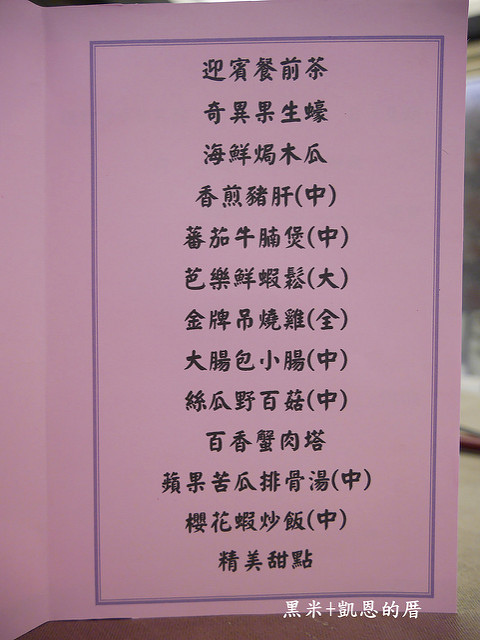 迎賓餐前茶
奇異果生蠔
海鮮焗木瓜
香煎豬肝(中)
蕃茄牛腩煲(中)
芭樂鮮蝦鬆(大)
金牌吊燒雞(全)
大腸包小腸(中)
絲瓜野百菇(中)
百香蟹肉塔
蘋果苦瓜排骨湯(中)
櫻花蝦炒飯(中)
精美甜點
黑米+凱恩的厝